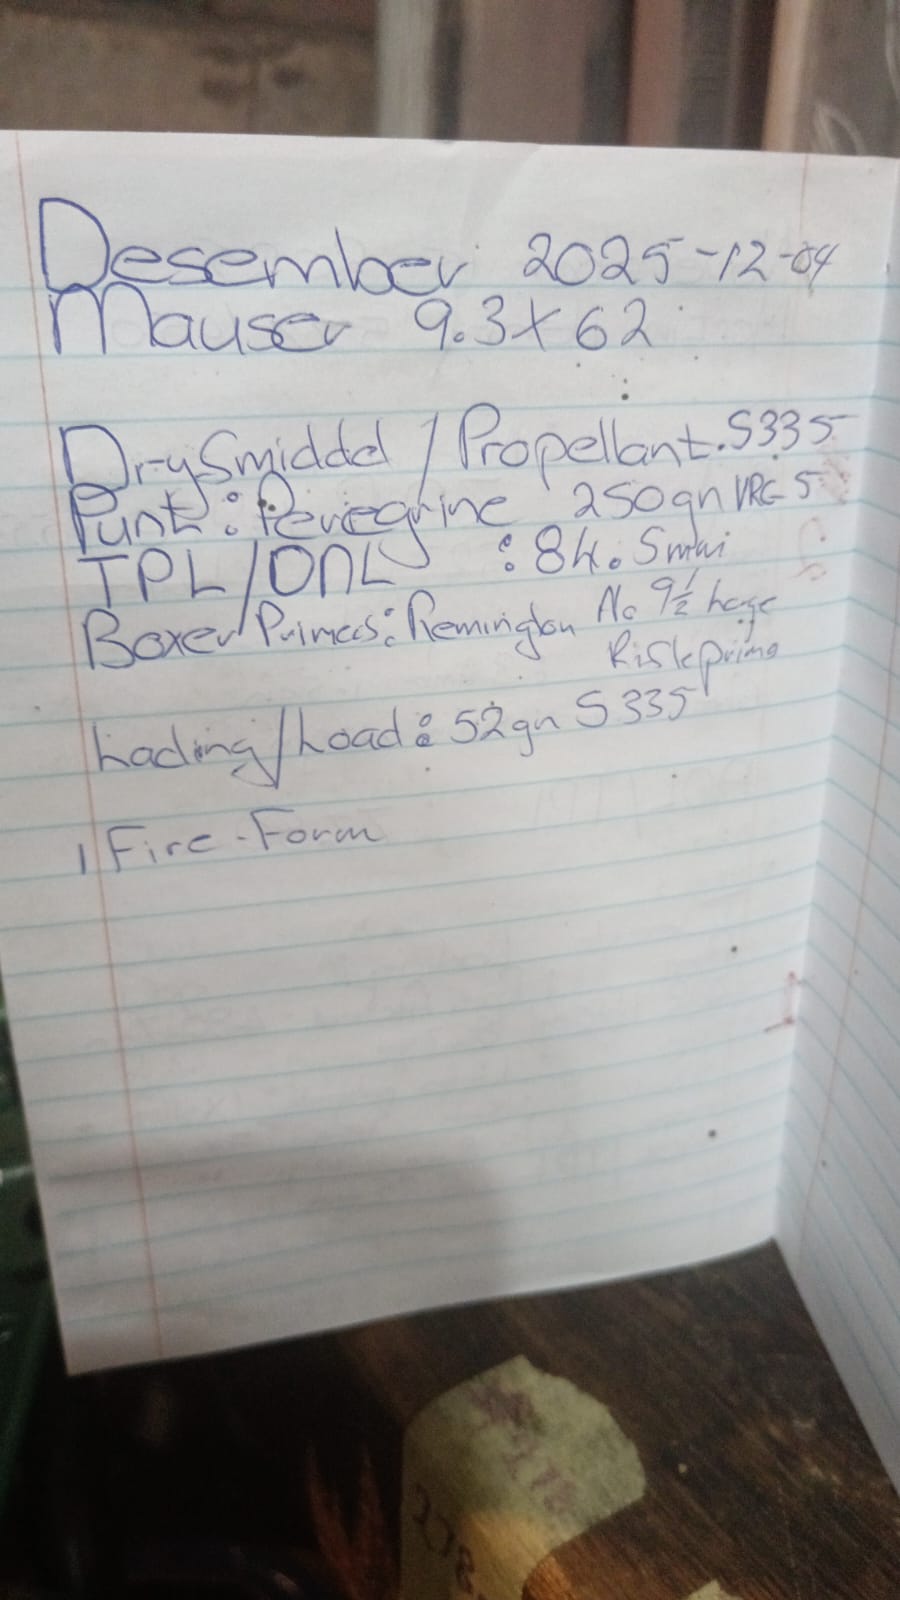 Desember 2025-12-04
Mauser 9.3X62
Drysmiddel / Propellant. S335
Punt: Peregrine 250gn VRG 5
TPL/ONL : 84.5mm
Boxer Primers: Remington No 9½ large
Riskprime
Lading/Load: 52gn S335
1 Fire-Form